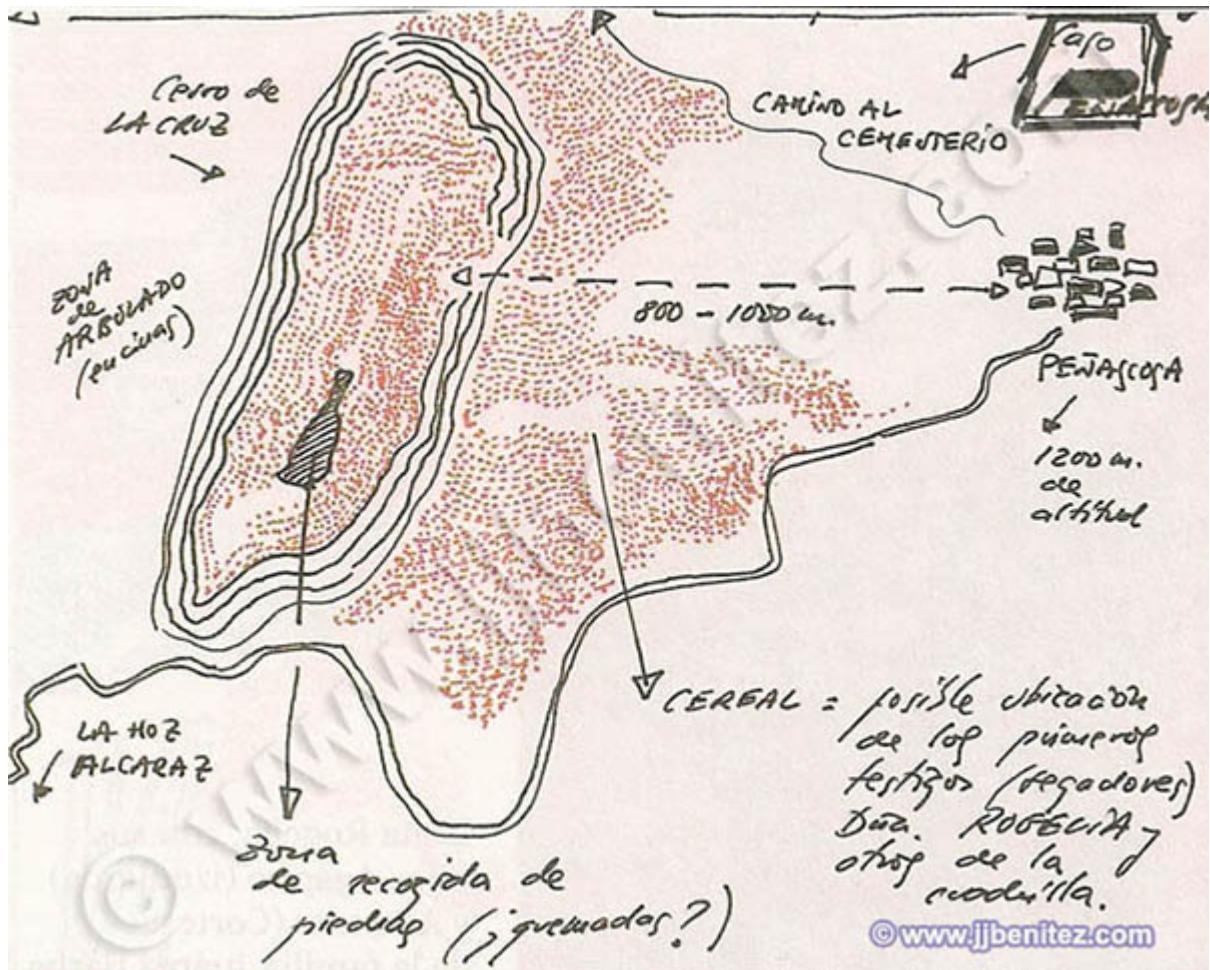 Cerro de
LA CRUZ
CAMINO AL
CEMENTERIO
Caso
PEÑASCOSA
ZONA
de
ARBOLADO
(encinas)
800 - 1000 m.
PEÑASCOSA
1200 m.
de
altitud
LA HOZ
ALCARAZ
CEREAL = posible ubicación
de los primeros
testigos (segadores)
Dña. ROGELIA y
otros de la
cuadrilla.
Zona
de recogida de
piedras (¿quemadas?)
© www.jjbenitez.com
© www.jjbenitez.com